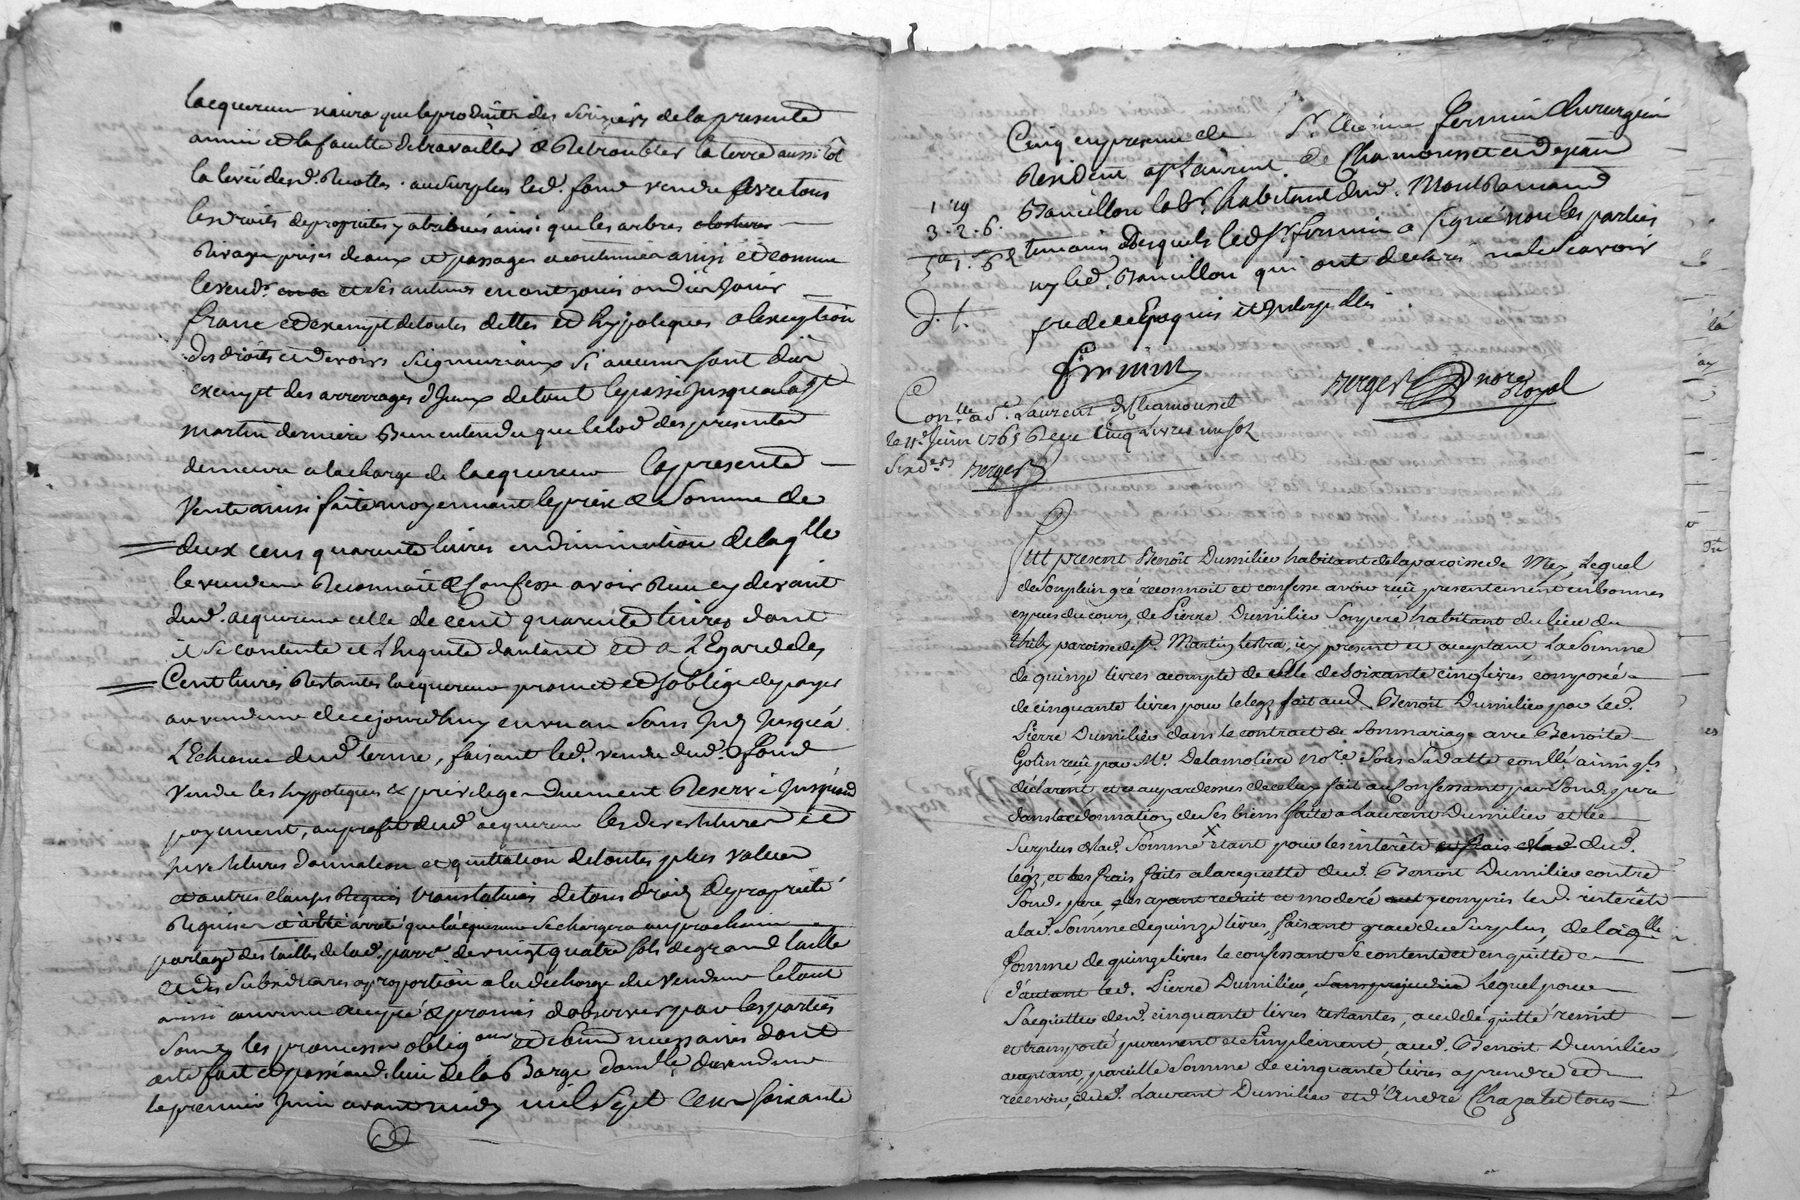 lacquereur naura que le produit des de la presente
année et la faculté de travailler & Retroubler la terre aussitôt
la levée desd. Recoltes. au Surplus led. fond vendu tous
les droits de proprietes y attribués ainsi que les arbres
Rivages prises deaux et passages accoutumés ainsi et comme
le vendr. et ses auteurs en ont jouis ou deu Jouir
franc et exempt de toutes dettes et hypoteques a lexception
des droits et devoirs seigneuriaux si aucuns sont dûs
exempt des arrerages dyceux de tout le passé jusqua la St
martin derniere Bien entendu que le lod des presentes
demeure a la charge de lacquereur la presente
Vente ainsi faite moyennant le prix & Somme de
deux cens quarente livres en diminution de laqlle
le vendeur Reconnoit & Confesse avoir Receu cy devant
dud. acquereur celle de cent quarente livres dont
il se contente et L'en quitte dautant et a L'Egard des
Cent livres Restantes lacquereur promet et soblige de payer
au vendeur de cejourdhuy en un an Sans jusqu'a
L'Echeance dud. terme, faisant led. vendeur dud. fond
vendu les hypoteques & privilege duement Reservé jusquaud
payement, au profit dud. acquereur les devestitures et
investitures donnation et quittation de toutes plus valeur
et autres clauses translatives de tous droits de proprieté
Requises et a Eté arreté que lacquereur se chargera au prochain
partage des tailles de lad. parr. de vingt quatre sols de grand taille
et des Subsidiaires a proportion a la decharge du vendeur le tout
ainsi convenu accepté & promis d'observer par les parties
Sous les promesses obligaons et clauses necessaires dont
acte fait et passé aud. lieu de la Barge domlle du vendeur
le premier Juin avant midy mil Sept Cens soixante
Cinq en presence de Sr. Etienne fermin chirurgien
Resident a St Laurent de Chamousset et de jean
Bancillon labr. habitant dud. Montromand
1 "19
3 . 2 . 6.
5 " 1 . 6 d
temoins desquels led Sr. fermin a signé non les parties
ny led. Bancillon qui ont declaré ne le Scavoir
de ce Enquis et Interpellés
fermin
Berger nore Royal
Conllé a St. Laurent de Chamousset
le 11e Juin 1765 Receu Cinq Livres un sol
Six drs Berger
Fut present Benoît Dumilieu habitant de la paroisse de Mey, Lequel
de Son plein gré reconnoit et confesse avoir reçû presentement en bonnes
especes du cours, de Pierre Dumilieu Son pere habitant du lieu du
paroisse de St. Martin Lestra, icy present et acceptant, La Somme
de quinze livres acompte de celle de soixante cinq livres composée
de cinquante livres pour le legs fait aud. Benoit Dumilieu par led.
Pierre Dumilieu dans le contract de Son mariage avec Benoite
Golin reçû par Me. Delamoliere nore Sous Sa datte conllé ainsi qls
déclarent, et au par dessus de celuy fait au Confessant par Sond. pere
dans la donnation de Ses biens faite a Laurent Dumilieu et le
Surplus de lad. Somme étant pour les interêts et frais de lad. dud.
legs, et les frais faits a la requette dud. Benoit Dumilieu contre
Sond. pere les ayant reduit et moderé y compris led. interêts
a lad. Somme de quinze livres, faisant grace du Surplus, de laqlle
Somme de quinze livres le confessant Se contente et en quitte
d'autant led. Pierre Dumilieu, Sans prejudice Lequel pour
S'acquitter desd. cinquante livres restantes, a cedé quitté remit
et transporté purement et Simplement, aud. Benoit Dumilieu
acceptant, pareille Somme de cinquante livres a prendre et
recevoir, dud. Laurent Dumilieu et d'André Chazalet tous